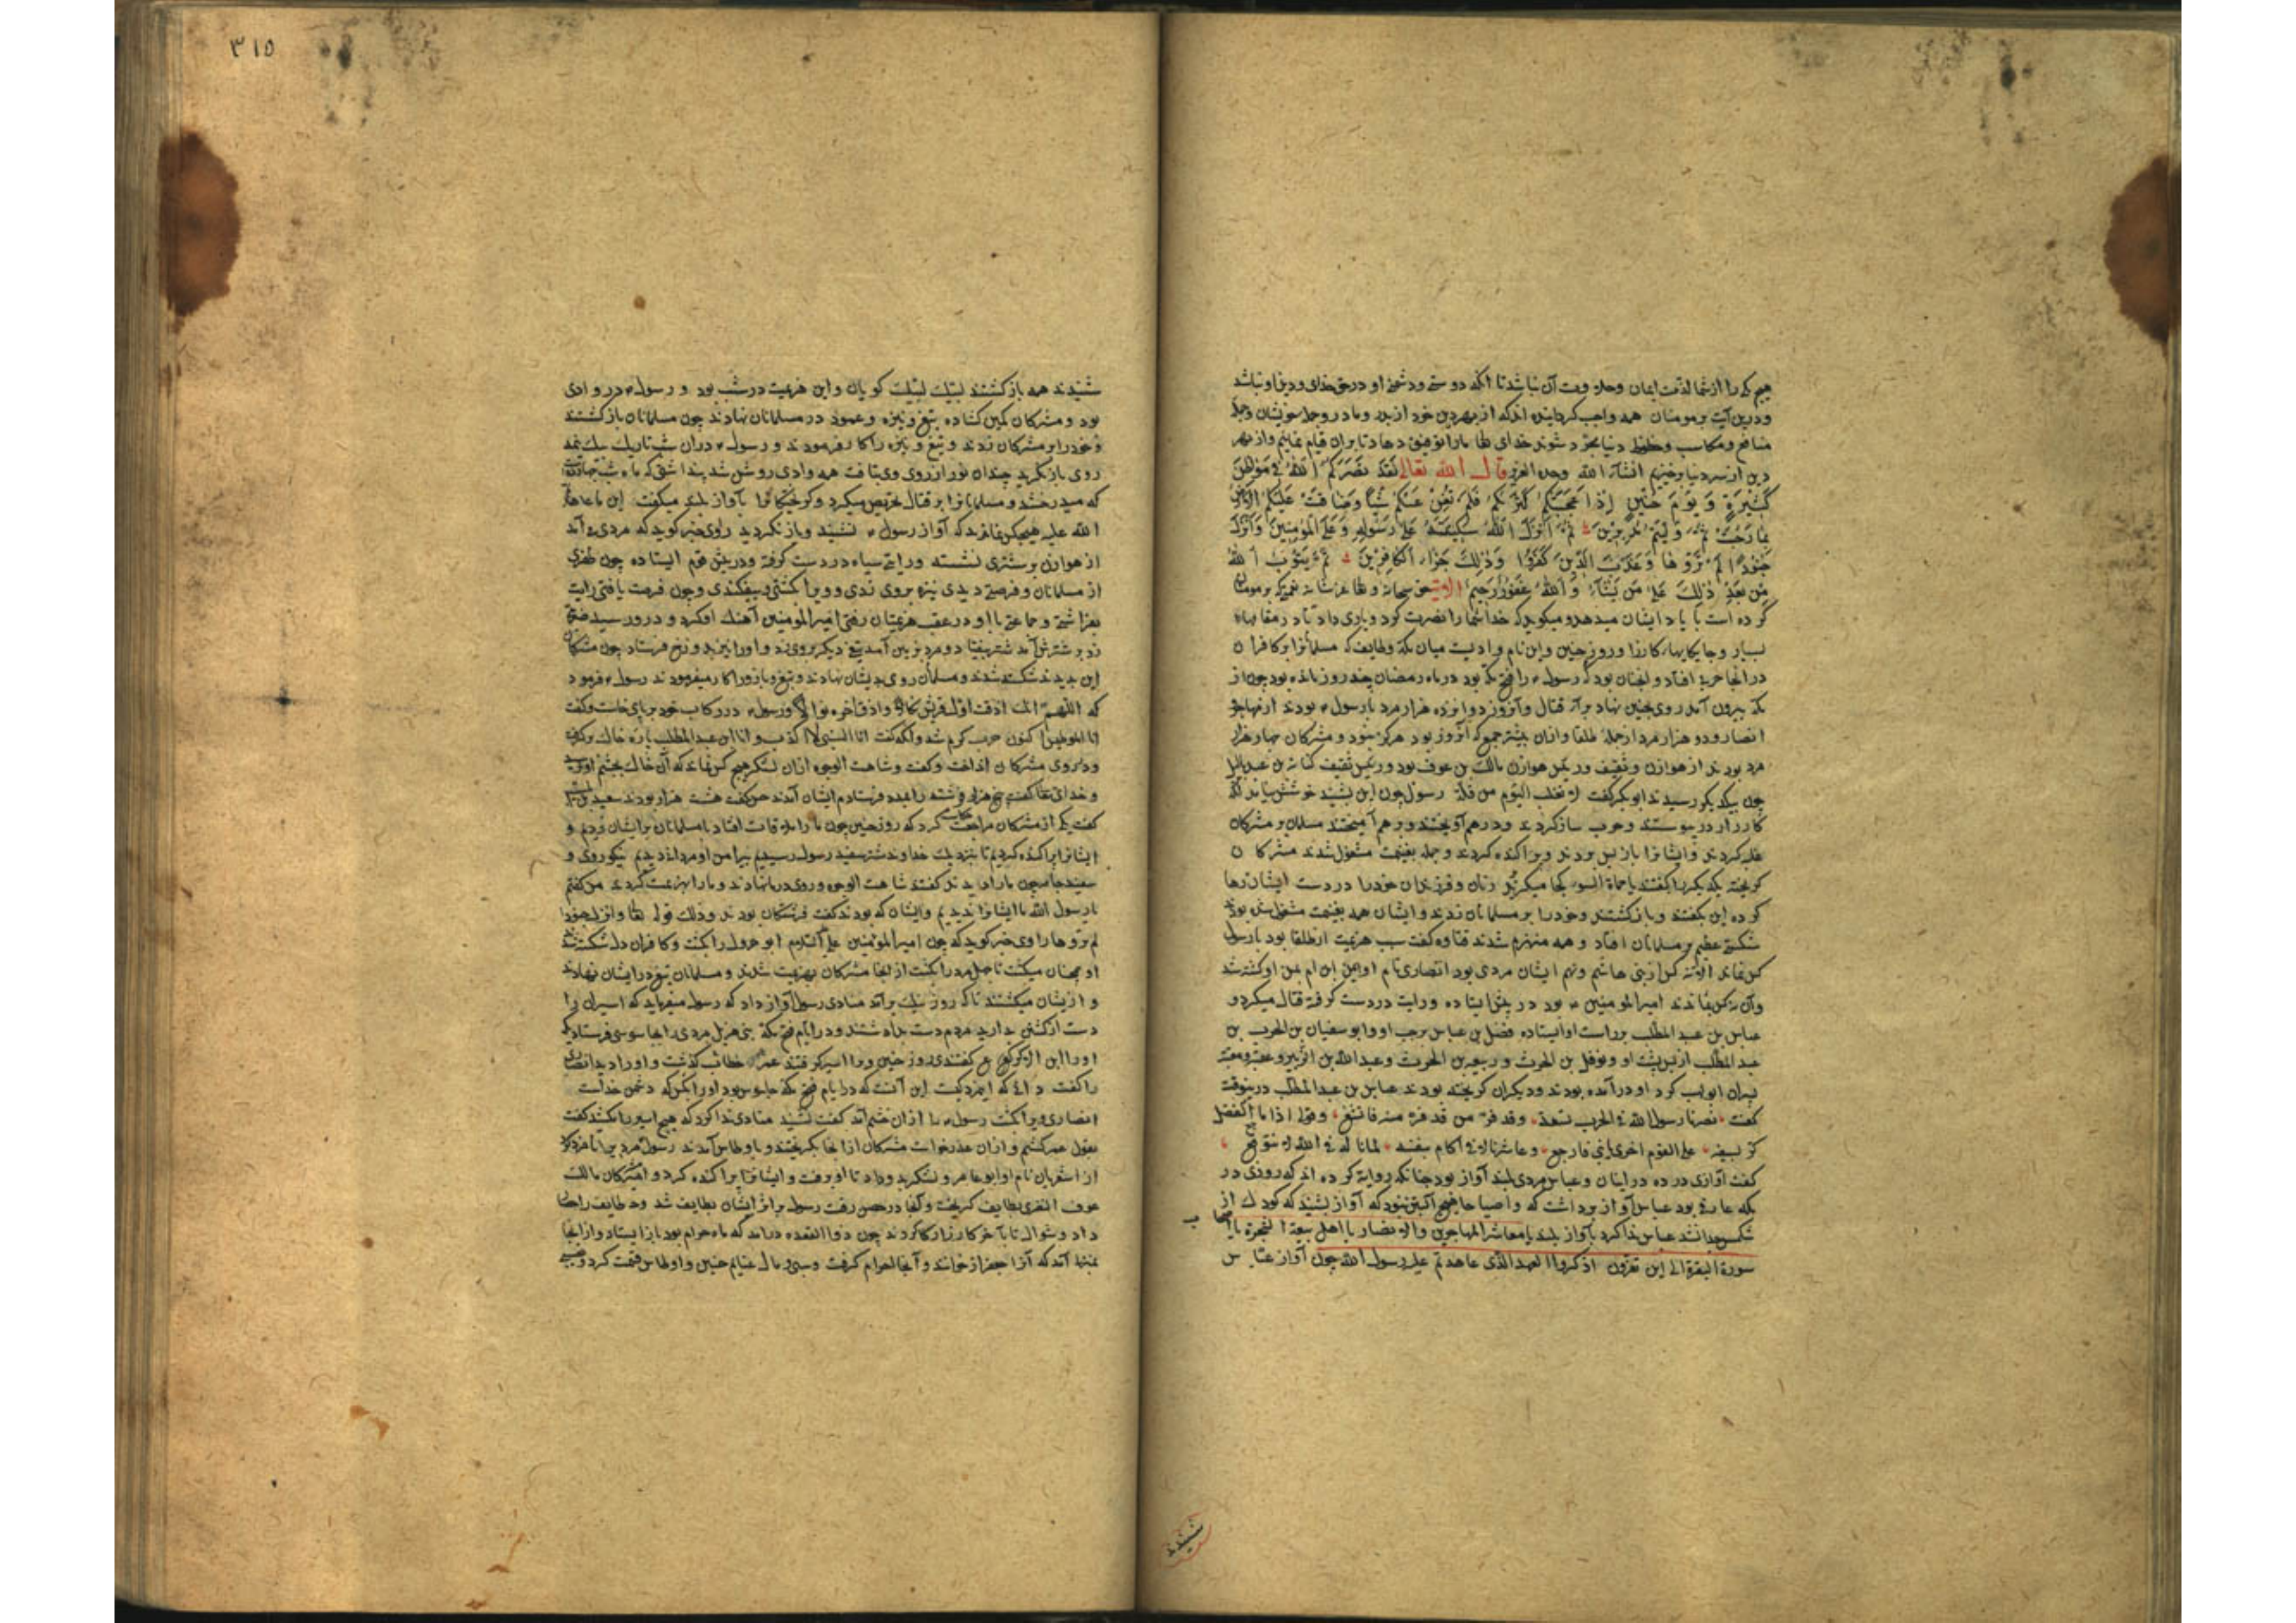 هیچ کس را از شما لذت ایمان وحلاوت آن نباشد تا آنکه دوستی ودشمنی او در حق خدای ودین او نباشد
ودرین آیت بر مومنان همه واجب کردانیده اند که از بهر دین خود از پدر ومادر وجمله خویشان وجمله
منافع ومکاسب وحظوظ دنیا مجرد شوند خدای تعالی ما را توفیق دهاد تا بران قیام نماییم واز بهر
دین از سر دنیا برخیزیم انشاء الله وحده العزیز قال الله تعالی لقد نصركم الله في مواطن
كثيرة ويوم حنين إذ أعجبتكم كثرتكم فلم تغن عنكم شيئا وضاقت عليكم الأرض
بما رحبت ثم وليتم مدبرين ثم أنزل الله سكينته على رسوله وعلى المؤمنين وأنزل
جنودا لم تروها وعذب الذين كفروا وذلك جزاء الكافرين ثم يتوب الله
من بعد ذلك على من يشاء والله غفور رحيم الآیتین حق سبحانه وتعالی عز شانه که بر مومنان
کرده است با یاد ایشان میدهد ومیکوید که خدا شما را نصرت کرد ویاری داد تا در مقامهاء
بسیار وجایکاههاء کارزار وروز حنین واین نام وادیست میان مکه وطایف که مسلمانانرا بر کافران
در انجا حرب افتاد وانچنان بود که رسول را فتح مکه بود در ماه رمضان چند روز مانده بود چون از
مکه بیرون آمد روی بحنین نهاد برای قتال وآنروز دوازده هزار مرد با رسول بودند از مهاجر
انصار ودو هزار مرد از جمله طلقا وازان بیشتر جمع که آنروز بود هرکز نبود ومشرکان چهار هزار
مرد بودند از هوازن وثقیف ورئیس هوازن مالک بن عوف بود ورئیس ثقیف کنانة بن عبد یالیل
چون بیکدیکر رسیدند ابوبکر گفت لن نغلب الیوم من قلة رسول چون این بشنید خوشش نیامد آنکه
کارزار در پیوستند وحرب ساز کردند ودرهم آویختند وبرهم آمیختند مسلمانان بر مشرکان
غلبه کردند وایشانرا باز پس بردند وپراکنده کردند وجمله بغنیمت مشغول شدند مشرکان
کریخته یکدیکر را کفتند یا حماة السوء کجا میکریزید زنان وفرزندان خود را در دست ایشان رها
کرده این بکفتند وباز کشتند وخود را بر مسلمانان زدند وایشان همه بغنیمت مشغول شده بودند
شکستی عظیم بر مسلمانان افتاد وهمه منهزم شدند قتاده کفت سبب هزیمت از طلقا بود با رسول
کس نماند الا نه کس از بنی هاشم ودهم ایشان مردی بود انصاری نام او ایمن ابن ام ایمن او کشته شد
وآن نه کس بماندند امیر المومنین بود در پیش ایستاده ورایت در دست کرفته قتال میکرد و
عباس بن عبد المطلب بر راست او ایستاده فضل بن عباس بر چپ او وابو سفیان بن الحرث بن
عبد المطلب از پس پشت او ونوفل بن الحرث وربیعة بن الحرث وعبد الله بن الزبیر وعتبه ومعتب
پسران ابو لهب کرد او در آمده بودند ودیکران کریخته بودند عباس بن عبد المطلب درینوقت
کفت نصرنا رسول الله فی الحرب تسعة وقد فر من قد فر منهم فاقشعوا وقولی اذا ما الفضل
کر بسیفه علی القوم اخری یا بنی لیرجعوا وعاشرنا لاقی الحمام بنفسه لما ناله فی الله لا یتوجع
کفت آوازی در ده در ایشان وعباس مردی بلند آواز بود چنانکه روایت کرده اند که روزی در
مکه غارتی بود عباس آواز برداشت که واصباحاه هیچ آبستن نبود که آواز بشنید که کودک از
شکم بیندانخت عباس ندا کرد بآواز بلند یا معاشر المهاجرین والانصار یا اهل بیعة الشجرة یا اصحاب
سورة البقرة الی این تفرون اذکروا العهد الذی عاهدتم علیه رسول الله چون آواز عباس
شنیدند
٣١٥
شنیدند همه باز کشتند لبیک لبیک کویان واین هزیمت در شب بود ورسول در وادی
بود ومشرکان کمین کشاده تیغ ونیزه وعمود در مسلمانان نهادند چون مسلمانان باز کشتند
وخود را بر مشرکان زدند وتیغ ونیزه را کار فرمودند ورسول دران شب تاریک یک نیمه
روی باز نکرید چندان نور از روی وی بتافت همه وادی روشن شد پنداشتی که ماه شب چهارده است
که میدرخشد ومسلمانانرا بر قتال تحریص میکرد وکریختکانرا بآواز بلند میکفت این ما عاهدتم
الله علیه هیچکس نماند که آواز رسول نشنید وباز نکردید راوی خبر کوید که مردی می آمد
از هوازن بر شتری نشسته ورایتی سیاه در دست کرفته ودر پیش قوم ایستاده چون ظفری
از مسلمانان وفرصتی دیدی نیزه بر وی زدی وویرا کشتی وبیفکندی وچون فرصت یافتی رایت
بفراشتی وجماعتی با او در عقب هزیمتیان رفتی امیر المومنین آهنک او کرد ودرو رسید ضربتی
زد بر شترش آمد شتر بیفتاد ومرد بزمین آمد تیغی دیکر بر وی زد واورا نیز بدوزخ فرستاد چون مشرکان
این بدیدند شکسته شدند ومسلمانان روی بدیشان نهادند وتیغ وبازو را کار میفرمودند رسول فرمود
که اللهم انک اذقت اول قریش نکالا واذق آخرهم نوالا ورسول در رکاب خود بر پای خاست وکفت
انا الموطس اکنون حرب کرم شد وآنکه کفت انا النبی لا کذب وانا ابن عبد المطلب پاره خاک برکرفت
ودر روی مشرکان انداخت وکفت وشاهت الوجوه ازان لشکر هیچ کس نماند که آن خاک بچشم او نرسید
وخدای تعالی پنج هزار فرشته را بمدد فرستاد
کفت یکی از مشرکان مرا حکایت کرد که روز حنین چون ما را ملاقات افتاد با مسلمانان بر ایشان زدیم و
ایشانرا پراکنده کردیم تا بنزدیک خداوند شتر سفید رسول رسیدیم پیرامن او مردانی دیدیم نیکو روی و
سفید جامه چون ما را دیدند کفتند شاهت الوجوه وروی در ما نهادند وما را هزیمت کردند من کفتم
یا رسول الله ما ایشانرا ندیدیم وایشان که بودند کفت فرشتکان بودند وذلک قوله تعالی وانزل جنودا
لم تروها راوی خبر کوید که چون امیر المومنین علیه السلام ابو جرول را بکشت وکافران دل شکسته شدند
او همچنان میکشت تا چهل مرد را بکشت از انجا مشرکان بهزیمت شدند ومسلمانان تیغ در ایشان نهادند
وازیشان میکشتند تا که روز نیک برآمد منادی رسول آواز داد که رسول میفرماید که اسیران را
دست از کشتن بدارید مردم دست بداشتند ودر ایام فتح مکه بنی هذیل مردی را بجاسوسی فرستاده بودند
اورا ابن الاکوع کفتندی روز حنین ویرا اسیر کرفتند عمر خطاب بکذشت واورا دید انصاری
را کفت دانی که این مرد کیست این آنست که در ایام فتح مکه جاسوس بود اورا بکش که دشمن خداست
انصاری ویرا بکشت رسول را ازان خشم آمد کفت نشنید منادی ندا کرد که هیچ اسیر را مکشید کفت
بقول عمر کشتم وازان عذر خواست مشرکان از انجا بکریختند وباوطاس آمدند رسول مردیرا نامزد کرد
از اشعریان نام او ابو عامر ولشکر بدو داد تا او برفت وایشانرا پراکنده کرد وامیر مشرکان مالک
عوف النصری بطایف کریخت وآنجا در حصن رفت رسول بر اثر ایشان بطایف شد وطایف را حصار
داد وشوال تا بآخر کارزار کردند چون ذو القعده درآمد که ماه حرام بود باز ایستاد واز انجا
بمنزلی آمد که آنرا جعرانه خوانند وآنجا احرام کرفت وسبی ومال غنایم حنین واوطاس قسمت کرد